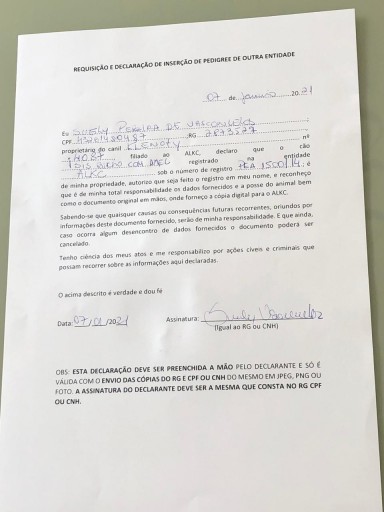 REQUISIÇÃO E DECLARAÇÃO DE INSERÇÃO DE PEDIGREE DE OUTRA ENTIDADE
07 de janeiro 20 21
Eu SUELY PEREIRA DE VASCONCELOS
CPF RG
proprietário do canil nº
14087 filiado ao ALKC, declaro que o cão
registrado na entidade
ALKC sob o número de registro é
de minha propriedade, autorizo que seja feito o registro em meu nome, e reconheço
que é de minha total responsabilidade os dados fornecidos e a posse do animal bem
como o documento original em mãos, onde forneço a cópia digital para o ALKC.
Sabendo-se que quaisquer causas ou consequências futuras recorrentes, oriundos por
informações deste documento fornecido, serão de minha responsabilidade. E que ainda,
caso ocorra algum desencontro de dados fornecidos o documento poderá ser
cancelado.
Tenho ciência dos meus atos e me responsabilizo por ações cíveis e criminais que
possam recorrer as informações aqui declaradas.
O acima descrito é verdade e dou fé
Data: 07/01/2021 Assinatura:
(Igual ao RG ou CNH)
OBS: ESTA DECLARAÇÃO DEVE SER PREENCHIDA A MÃO PELO DECLARANTE E SÓ É
VÁLIDA COM O ENVIO DAS CÓPIAS DO RG E CPF OU CNH DO MESMO EM JPEG, PNG OU
FOTO. A ASSINATURA DO DECLARANTE DEVE SER A MESMA QUE CONSTA NO RG CPF
OU CNH.